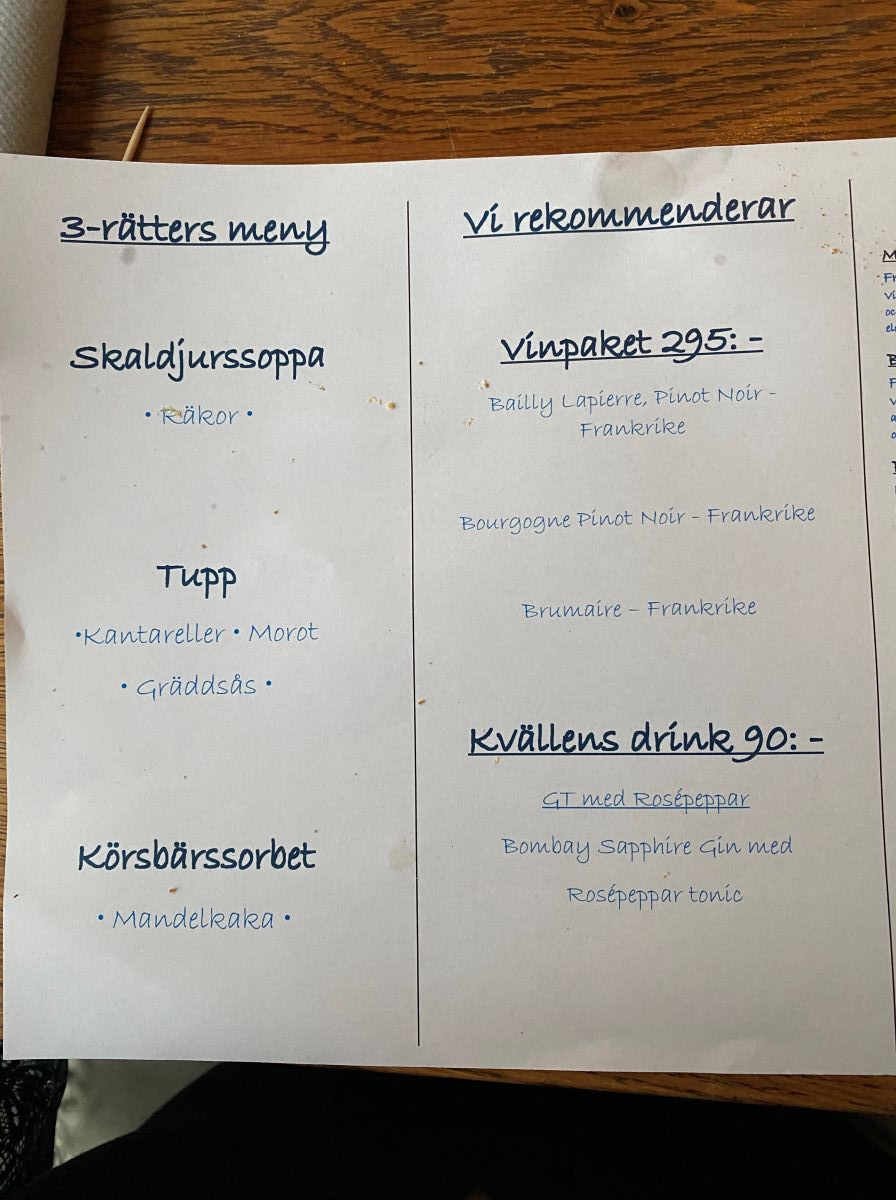 3-rätters meny
Skaldjurssoppa
• Räkor •
Tupp
•Kantareller • Morot
• Gräddsås •
Körsbärssorbet
• Mandelkaka •
Vi rekommenderar
Vinpaket 295: -
Bailly Lapierre, Pinot Noir -
Frankrike
Bourgogne Pinot Noir - Frankrike
Brumaire - Frankrike
Kvällens drink 90: -
GT med Rosépeppar
Bombay Sapphire Gin med
Rosépeppar tonic